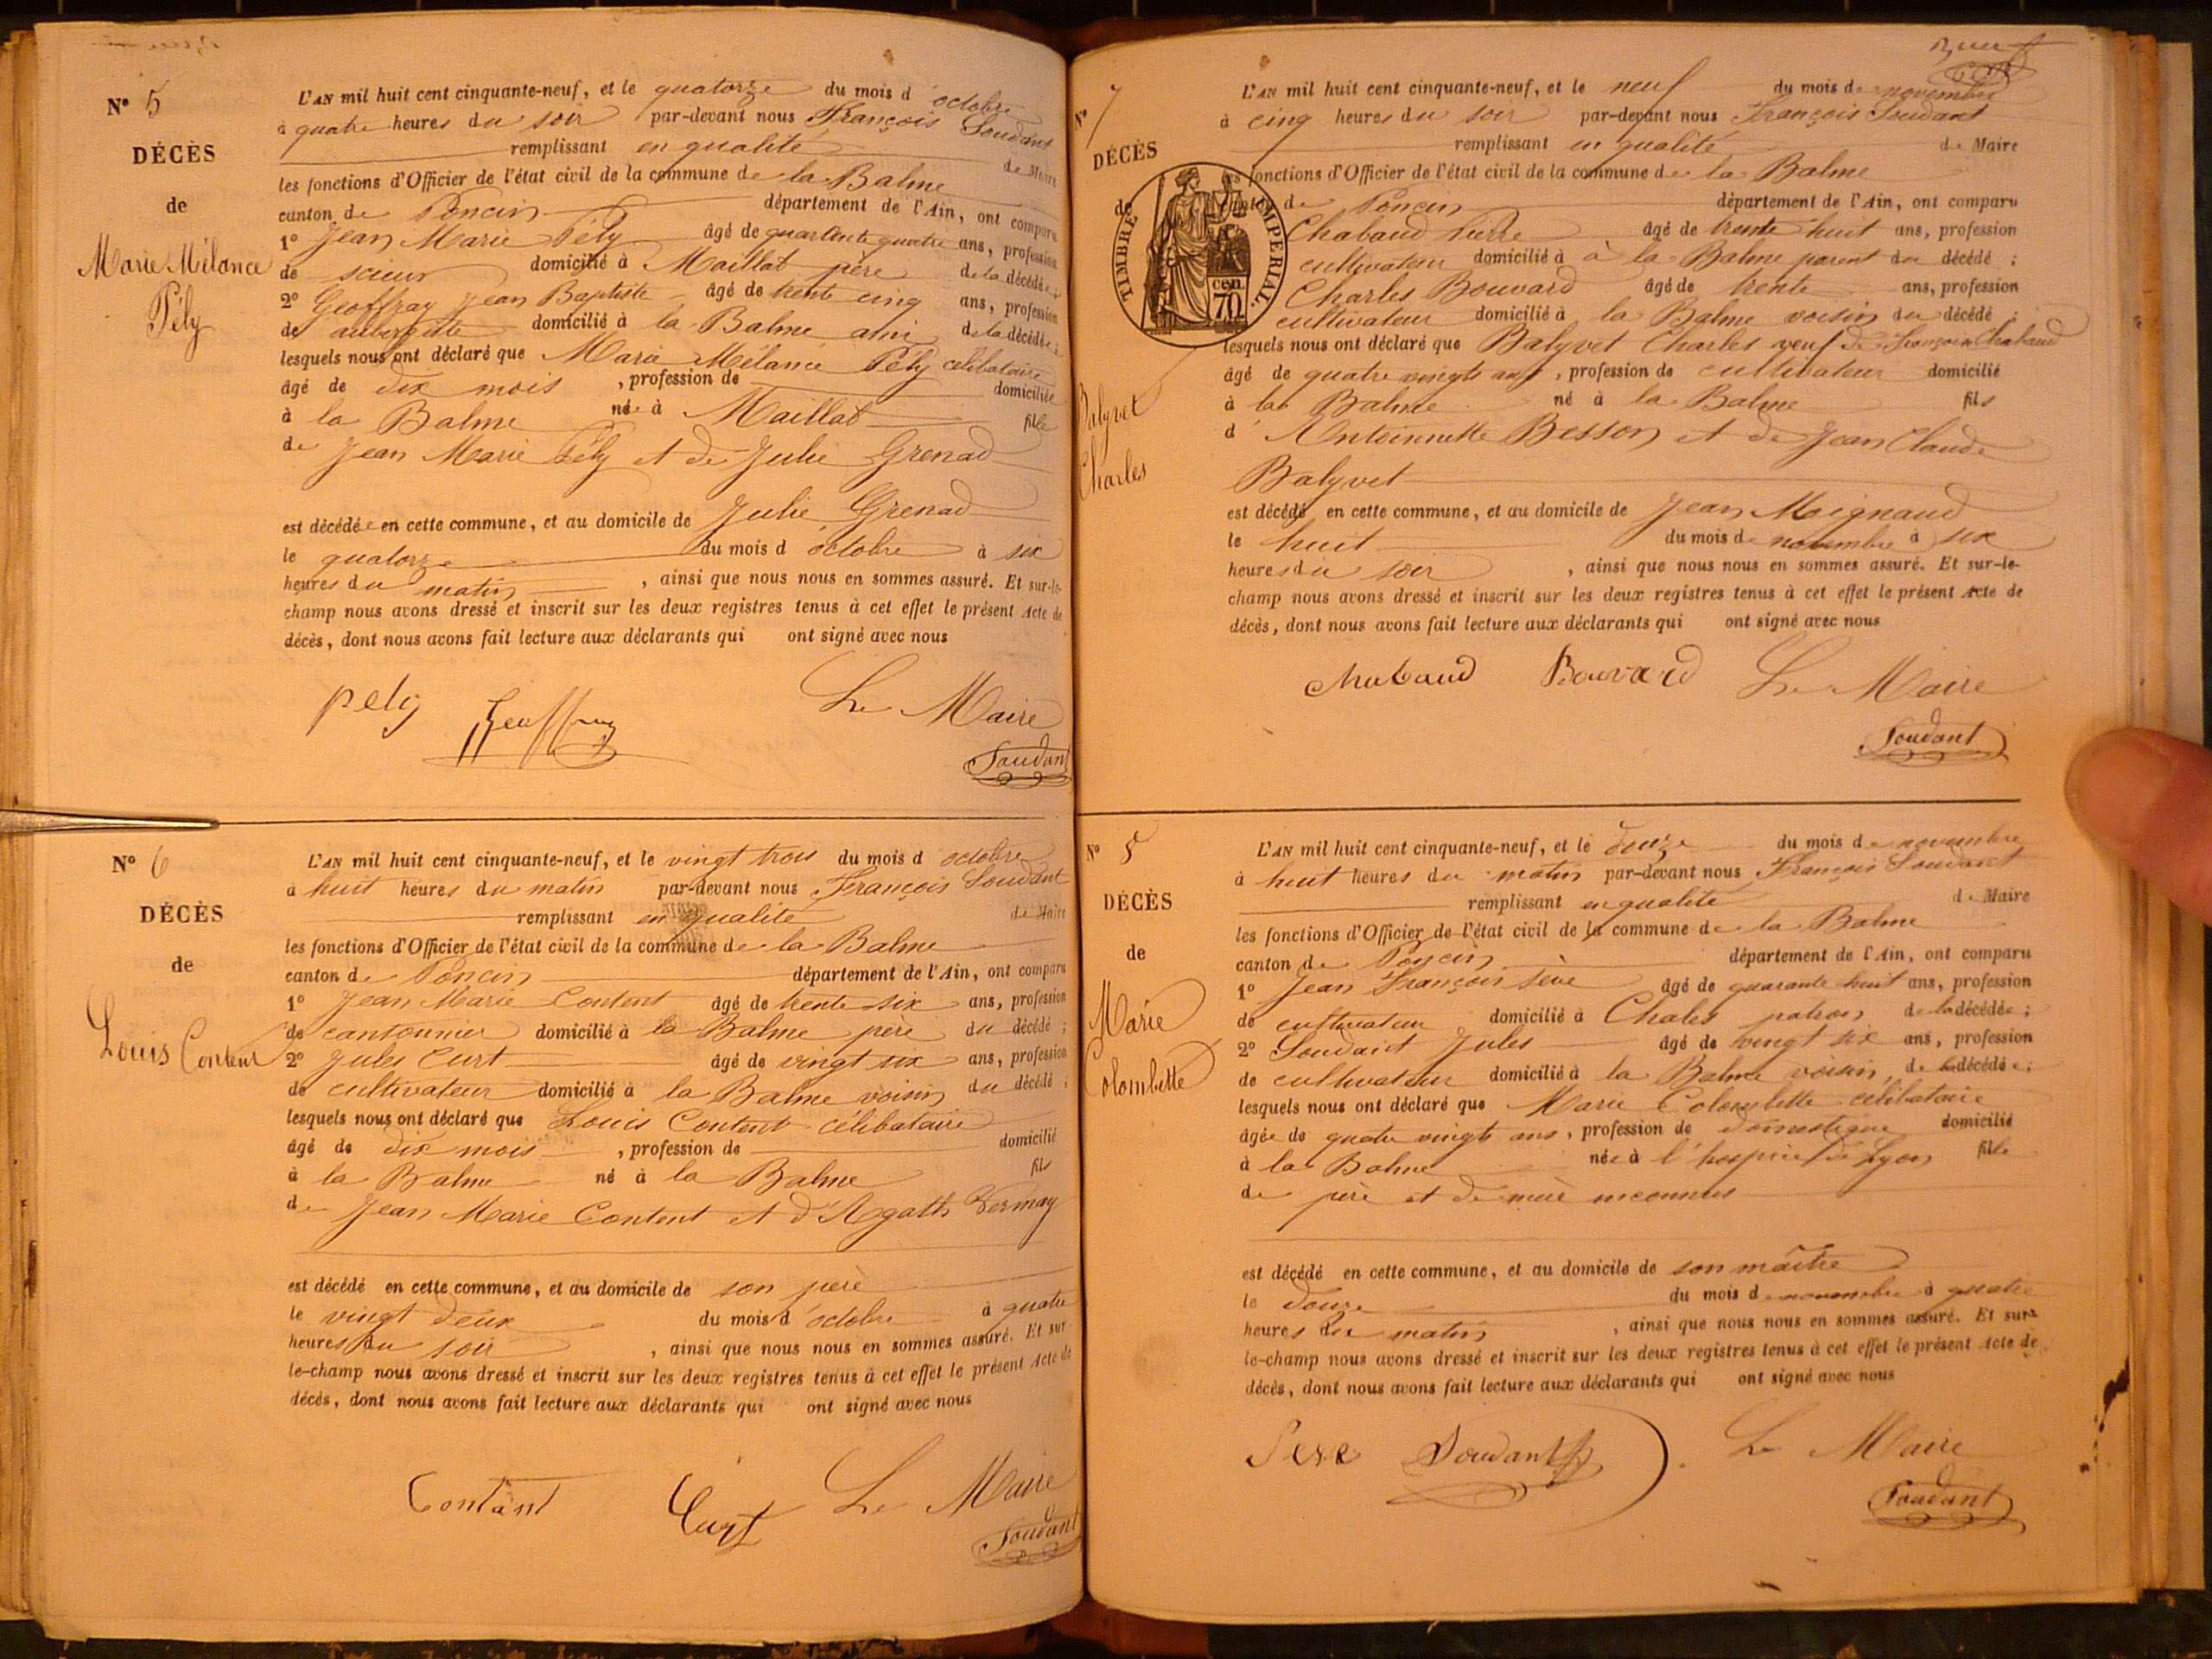 N° 5
DÉCÈS
de
Marie Mélance
Pély
L'AN mil huit cent cinquante-neuf, et le quatorze du mois d'octobre
à quatre heures du soir par-devant nous François Soudant
remplissant en qualité de Maire
les fonctions d'Officier de l'état civil de la commune de la Balme
canton de Poncin département de l'Ain, ont comparu
1° Jean Marie Pély âgé de quarante quatre ans, profession
de scieur domicilié à Maillat père de la décédée ;
2° Geoffray Jean Baptiste âgé de trente cinq ans, profession
de aubergiste domicilié à la Balme ami de la décédée ;
lesquels nous ont déclaré que Marie Mélanie Pély célibataire
âgé de dix mois , profession de domiciliée
à la Balme née à Maillat fille
de Jean Marie Pély et de Julie Grenad
est décédée en cette commune, et au domicile de Julie Grenad
le quatorze du mois d'octobre à six
heures du matin , ainsi que nous nous en sommes assuré. Et sur-le-
champ nous avons dressé et inscrit sur les deux registres tenus à cet effet le présent Acte de
décès, dont nous avons fait lecture aux déclarants qui ont signé avec nous
pely Geoffray Le Maire
Soudant
N° 6
DÉCÈS
de
Louis Content
L'AN mil huit cent cinquante-neuf, et le vingt trois du mois d'octobre
à huit heures du matin par-devant nous François Soudant
remplissant en qualité de Maire
les fonctions d'Officier de l'état civil de la commune de la Balme
canton de Poncin département de l'Ain, ont comparu
1° Jean Marie Content âgé de trente six ans, profession
de cantonnier domicilié à la Balme père du décédé ;
2° Jules Curt âgé de vingt six ans, profession
de cultivateur domicilié à la Balme voisin du décédé ;
lesquels nous ont déclaré que Louis Content célibataire
âgé de dix mois , profession de domicilié
à la Balme né à la Balme fils
de Jean Marie Content et d'Agath Vermay
est décédé en cette commune, et au domicile de son père
le vingt deux du mois d'octobre à quatre
heures du soir , ainsi que nous nous en sommes assuré. Et sur-
le-champ nous avons dressé et inscrit sur les deux registres tenus à cet effet le présent Acte de
décès, dont nous avons fait lecture aux déclarants qui ont signé avec nous
Contant Curt Le Maire
Soudant
N° 7
DÉCÈS
de
TIMBRE IMPERIAL.
70 cen
Balyvet
Charles
L'AN mil huit cent cinquante-neuf, et le neuf du mois de novembre
à cinq heures du soir par-devant nous François Soudant
remplissant en qualité de Maire
les fonctions d'Officier de l'état civil de la commune de la Balme
canton de Poncin département de l'Ain, ont comparu
Chabaud Pierre âgé de trente huit ans, profession
cultivateur domicilié à à la Balme parent du décédé ;
Charles Bouvard âgé de trente ans, profession
cultivateur domicilié à la Balme voisin du décédé ;
lesquels nous ont déclaré que Balyvet Charles veuf de Françoise Chabaud
âgé de quatre vingts ans , profession de cultivateur domicilié
à la Balme né à la Balme fils
d'Antoinnette Besson et de Jean Claude
Balyvet
est décédé en cette commune, et au domicile de Jean Moignaud
le huit du mois de novembre à six
heures du soir , ainsi que nous nous en sommes assuré. Et sur-le-
champ nous avons dressé et inscrit sur les deux registres tenus à cet effet le présent Acte de
décès, dont nous avons fait lecture aux déclarants qui ont signé avec nous
Chabaud Bouvard Le Maire
Soudant
N° 8
DÉCÈS
de
Marie
Colombette
L'AN mil huit cent cinquante-neuf, et le douze du mois de novembre
à huit heures du matin par-devant nous François Soudant
remplissant en qualité de Maire
les fonctions d'Officier de l'état civil de la commune de la Balme
canton de Poncin département de l'Ain, ont comparu
1° Jean François Sève âgé de quarante huit ans, profession
de cultivateur domicilié à Chales patron de la décédée ;
2° Soudant Jules âgé de vingt six ans, profession
de cultivateur domicilié à la Balme voisin, de la décédée ;
lesquels nous ont déclaré que Marie Colombette célibataire
âgée de quatre vingts ans , profession de domestique domicilié
à la Balme née à l'hospice de Lyon fille
de père et de mère inconnus
est décédé en cette commune, et au domicile de son maître
le douze du mois de novembre à quatre
heures du matin , ainsi que nous nous en sommes assuré. Et sur-
le-champ nous avons dressé et inscrit sur les deux registres tenus à cet effet le présent Acte de
décès, dont nous avons fait lecture aux déclarants qui ont signé avec nous
Seve Soudant Le Maire
Soudant